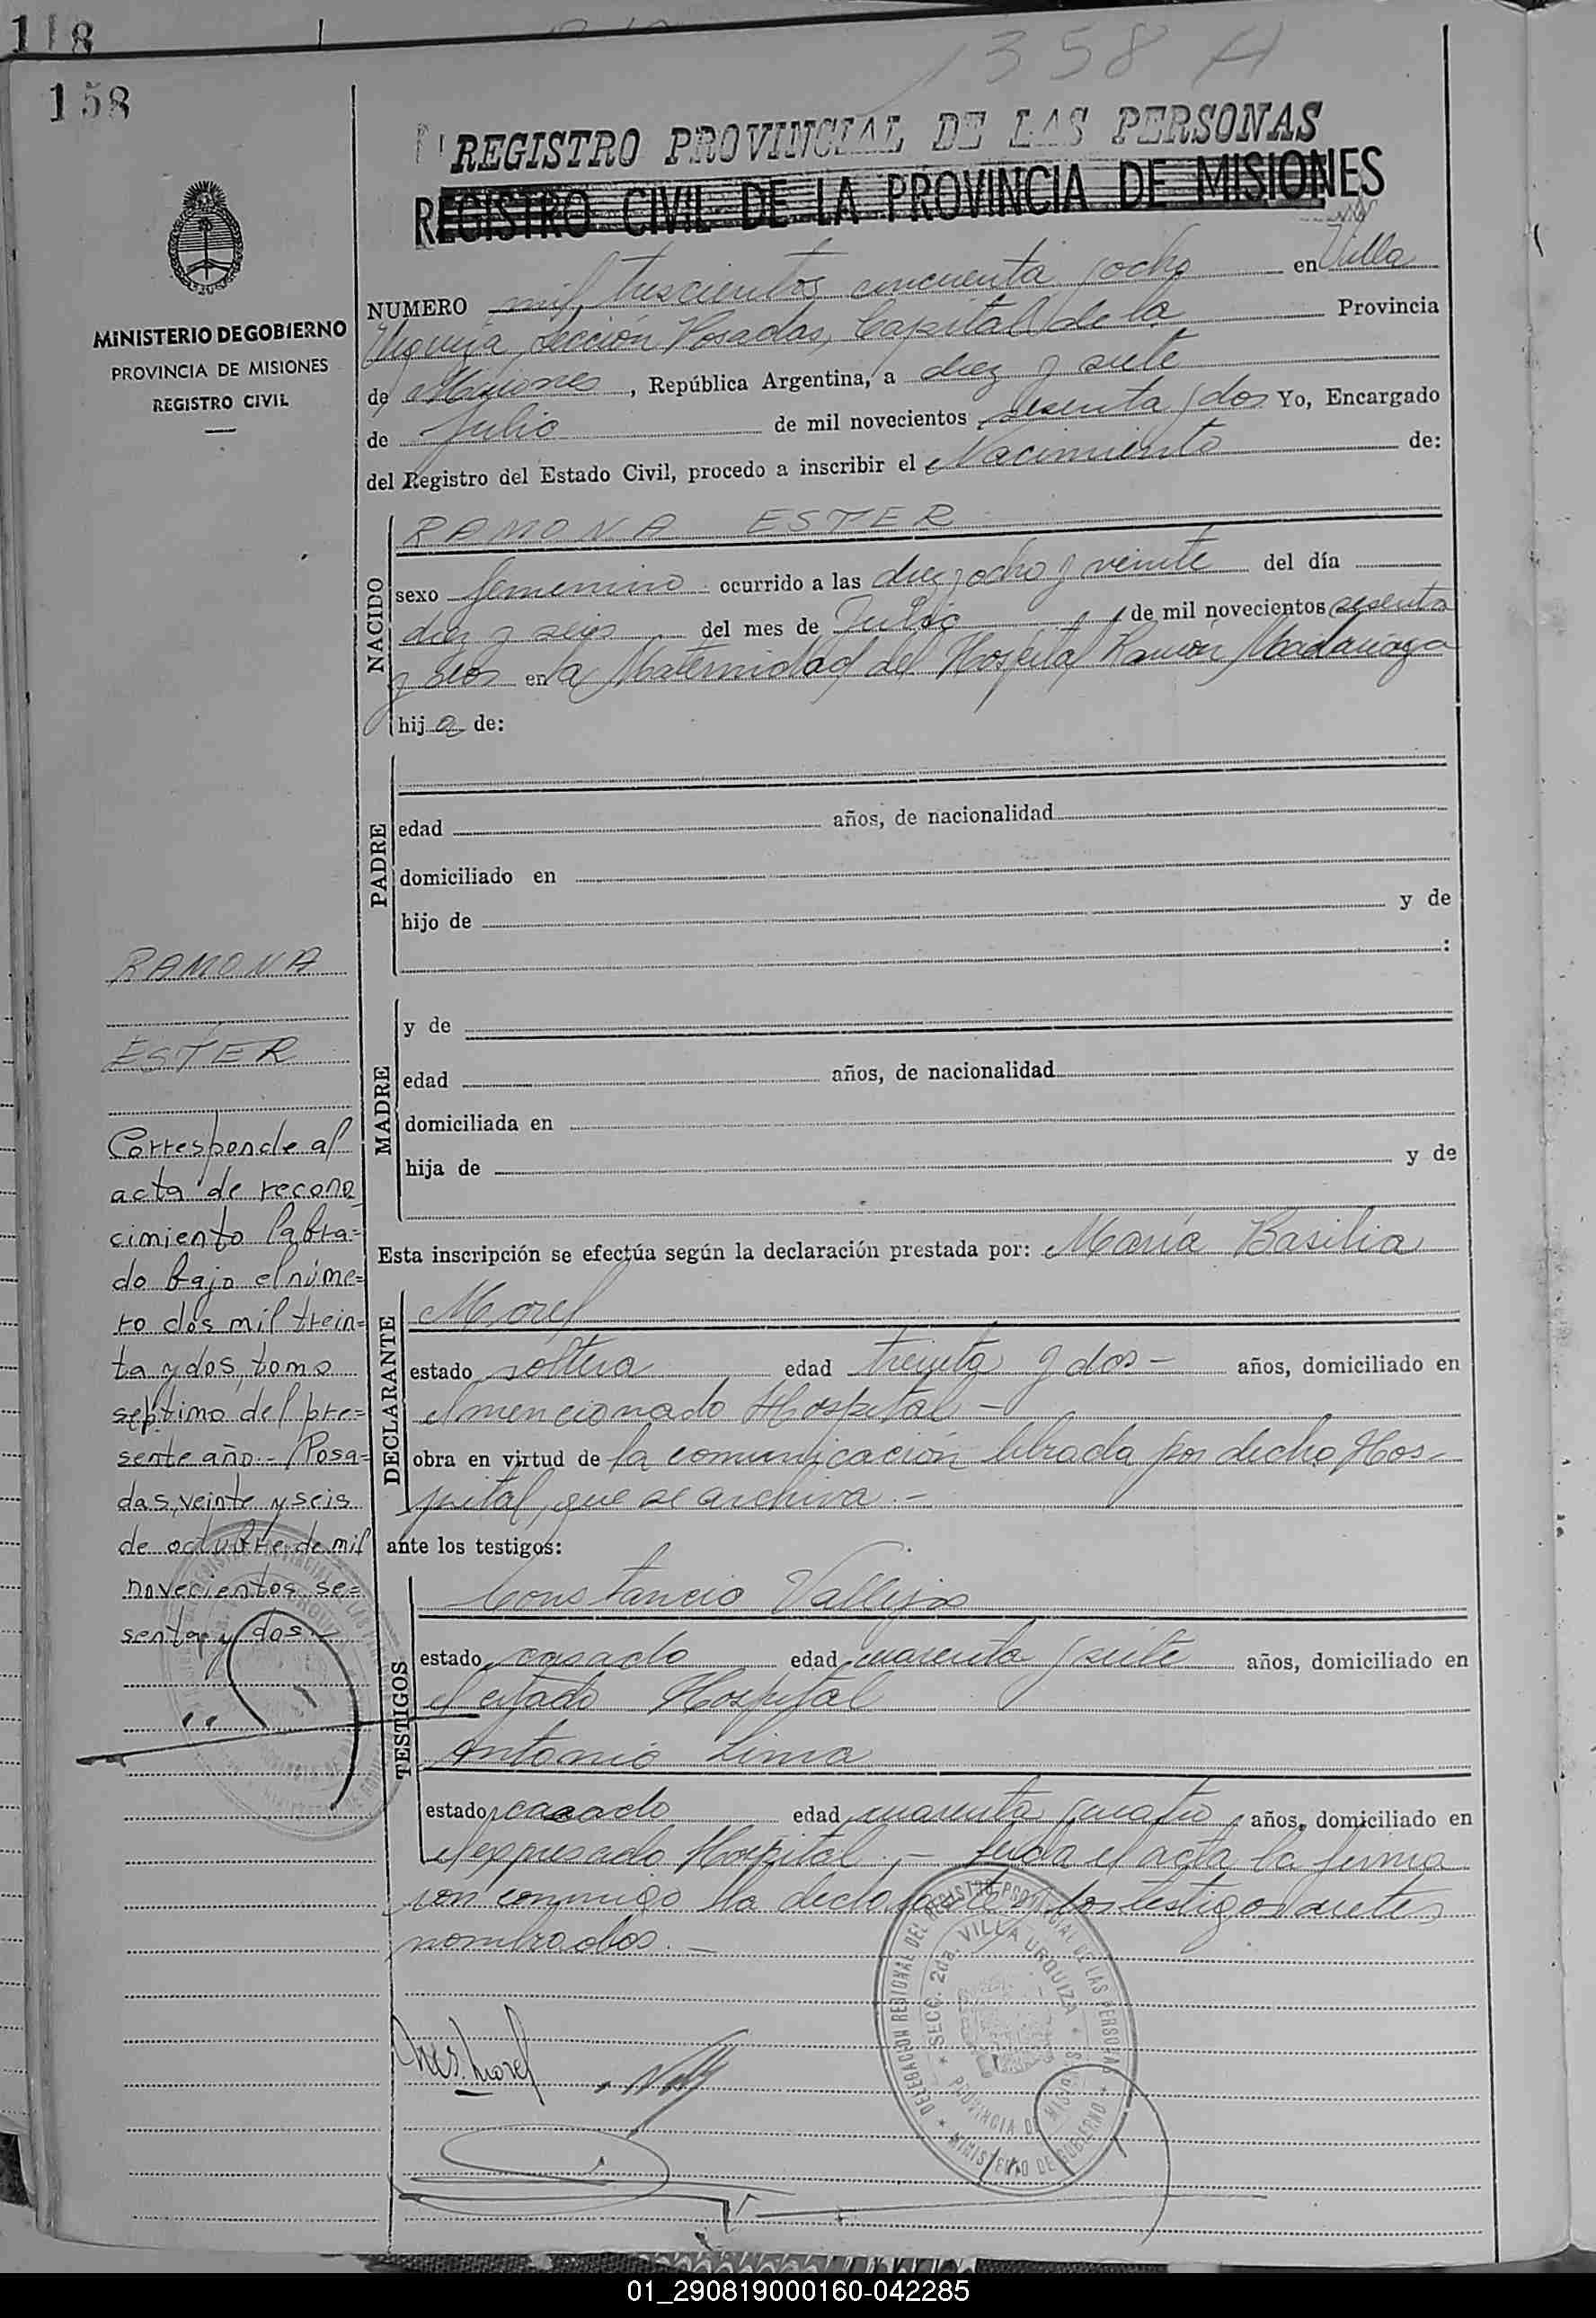 118
158
1358 A
REGISTRO PROVINCIAL DE LAS PERSONAS
REGISTRO CIVIL DE LA PROVINCIA DE MISIONES
MINISTERIO DE GOBIERNO
PROVINCIA DE MISIONES
REGISTRO CIVIL
NUMERO mil trescientos cincuenta y ocho en Villa
Urquiza, Sección Posadas, Capital de la Provincia
de Misiones, República Argentina, a diez y siete
de Julio de mil novecientos sesenta y dos Yo, Encargado
del Registro del Estado Civil, procedo a inscribir el Nacimiento de:
NACIDO
RAMONA ESTER
sexo femenino ocurrido a las diez y ocho y veinte del día
diez y seis del mes de Julio de mil novecientos sesenta
y dos en la Maternidad del Hospital Ramón Madariaga
hija de:
PADRE
edad años, de nacionalidad
domiciliado en
hijo de y de
:
MADRE
y de
edad años, de nacionalidad
domiciliada en
hija de y de
Esta inscripción se efectúa según la declaración prestada por: María Basilia
DECLARANTE
Morel
estado soltera edad treinta y dos - años, domiciliado en
el mencionado Hospital -
obra en virtud de la comunicación librada por dicho Hos-
pital, que se archiva.-
ante los testigos:
TESTIGOS
Constancio Vallejos
estado casado edad cuarenta y siete años, domiciliado en
el citado Hospital
Antonio Lima
estado casado edad cuarenta y cuatro años, domiciliado en
el expresado Hospital.- Leída el acta la firma
con conmigo la declarante y los testigos antes
nombrados.-
RAMONA
ESTER
Corresponde al
acta de recono
cimiento labra=
do bajo el núme=
ro dos mil trein=
ta y dos, tomo
septimo del pre=
sente año.- Posa=
das, veinte y seis
de octubre de mil
novecientos se=
senta y dos.-
Morel
DELEGACION REGIONAL DEL REGISTRO PROVINCIAL DE LAS PERSONAS
SECC. 2da. VILLA URQUIZA
PROVINCIA DE MISIONES
MINISTERIO DE GOBIERNO
01_290819000160-042285